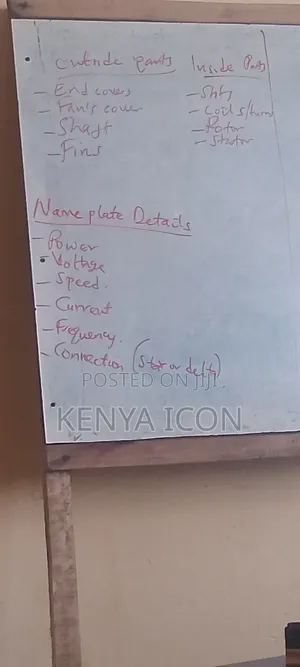 Outside parts
- End covers
- Fan's cover
- Shaft
- Fins
Inside Parts
- Coils/turns
- Rotor
- Stator
Name plate Details
- Power
- Voltage
- Speed.
- Current
- Frequency.
- Connection (Star or delta)
POSTED ON JIJI
KENYA ICON